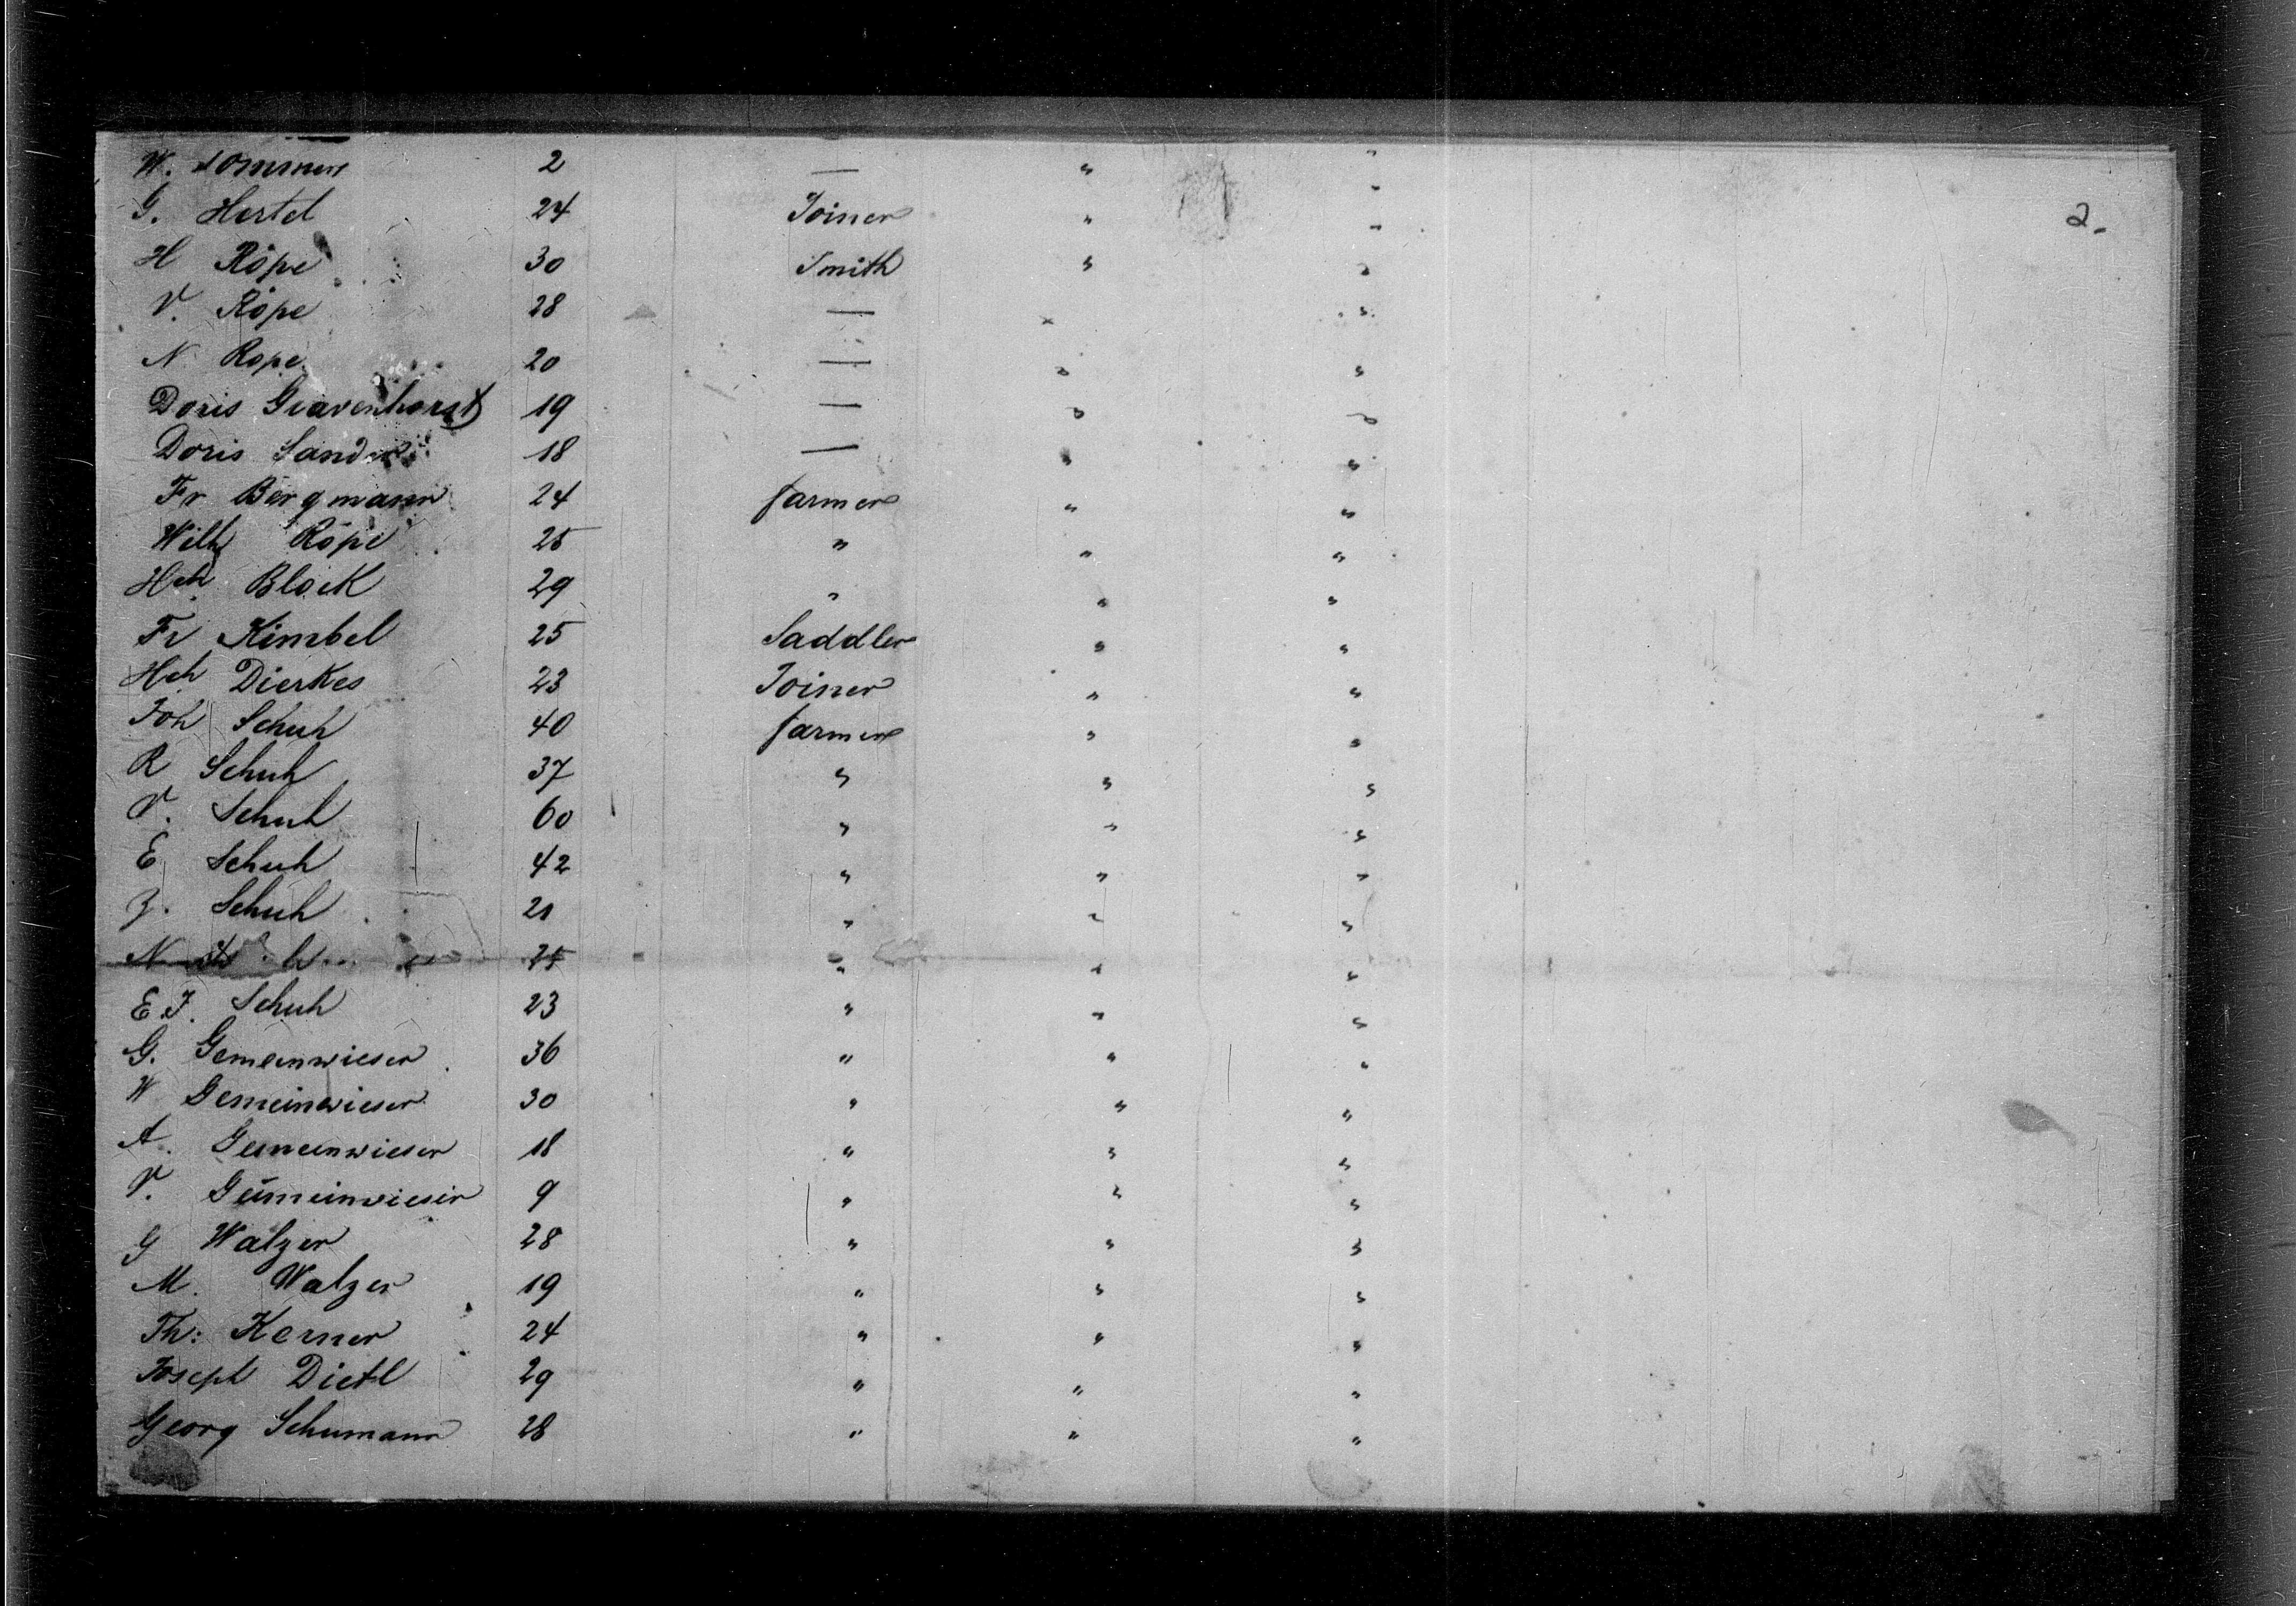 W. Sommer 2 — " "
G. Hertel 24 Joiner " " 2.
H Röpe 30 Smith " "
V. Röpe 28 — " "
N. Rope 20 — " "
Doris Gravenhorst 19 — " "
Doris Sander 18 — " "
Fr Bergmann 24 farmer " "
Wilh Röpe 25 " " "
Hch Block 29 " " "
Fr Kimbel 25 Saddler " "
Hch Dierkes 23 Joiner " "
Joh Schuh 40 farmer " "
R Schuh 37 " " "
V. Schuh 60 " " "
E Schuh 42 " " "
Z. Schuh 21 " " "
N 25 " " "
E. J. Schuh 23 " " "
G. Gemeinwieser 36 " " "
W Gemeinwieser 30 " " "
A. Gemeinwieser 18 " " "
V. Gemeinwieser 9 " " "
G Walzer 28 " " "
M. Walzer 19 " " "
Th: Kerner 24 " " "
Joseph Dietl 29 " " "
Georg Schumann 28 " " "